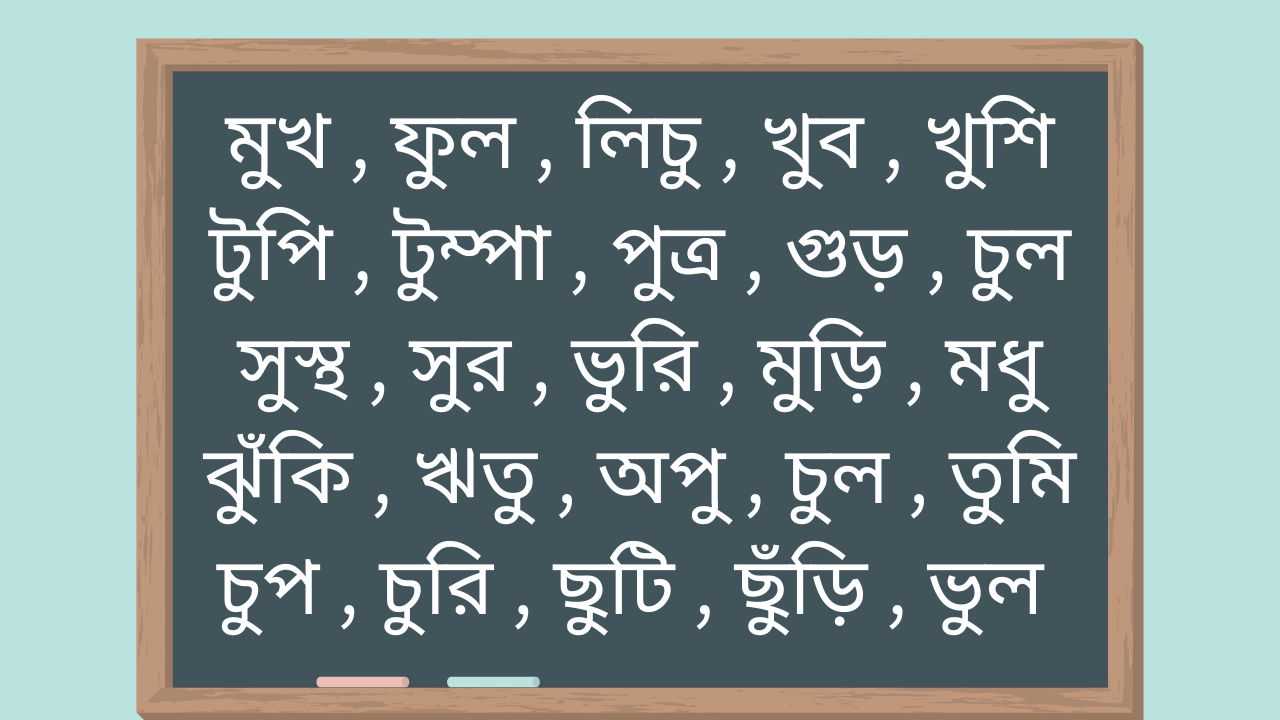 মুখ , ফুল , লিচু , খুব , খুশি
টুপি , টুম্পা , পুত্র , গুড় , চুল
সুস্থ , সুর , ভুরি , মুড়ি , মধু
ঝুঁকি , ঋতু , অপু , চুল , তুমি
চুপ , চুরি , ছুটি , ছুঁড়ি , ভুল